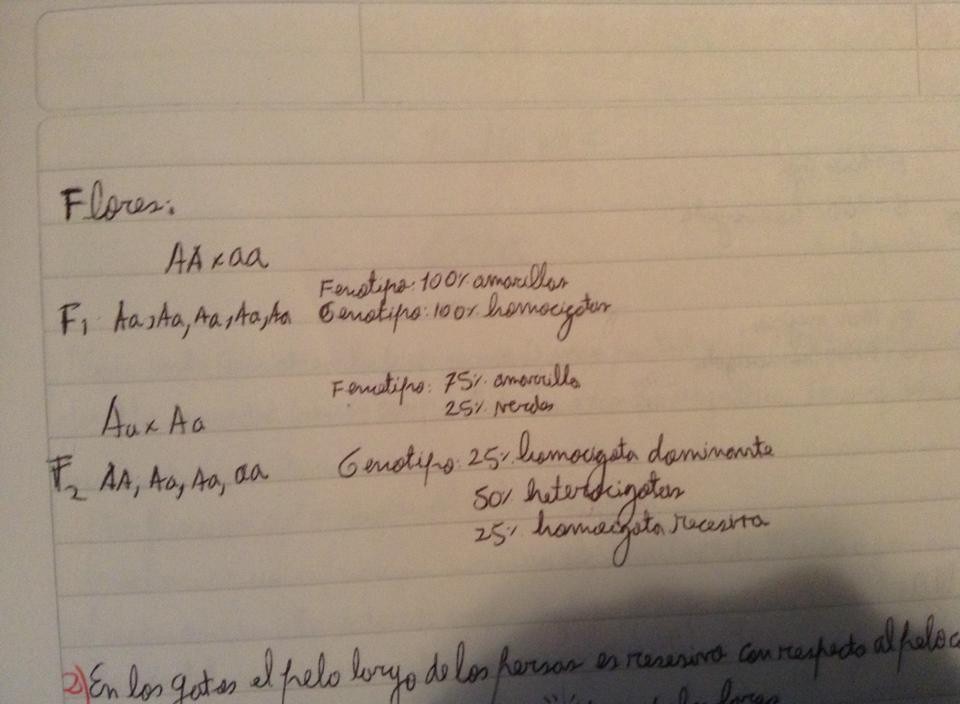 Flores:
AA x aa
Fenotipo: 100% amarillas
F1 Aa, Aa, Aa, Aa, Aa Genotipo: 100% homocigotas
Fenotipo: 75% amarilla
25% verdes
Aa x Aa
F2 AA, Aa, Aa, aa Genotipo: 25% homocigota dominante
50% heterocigotas
25% homocigota recesiva
2) En los gatos el pelo largo de los persas es resesivo con respecto al pelo c